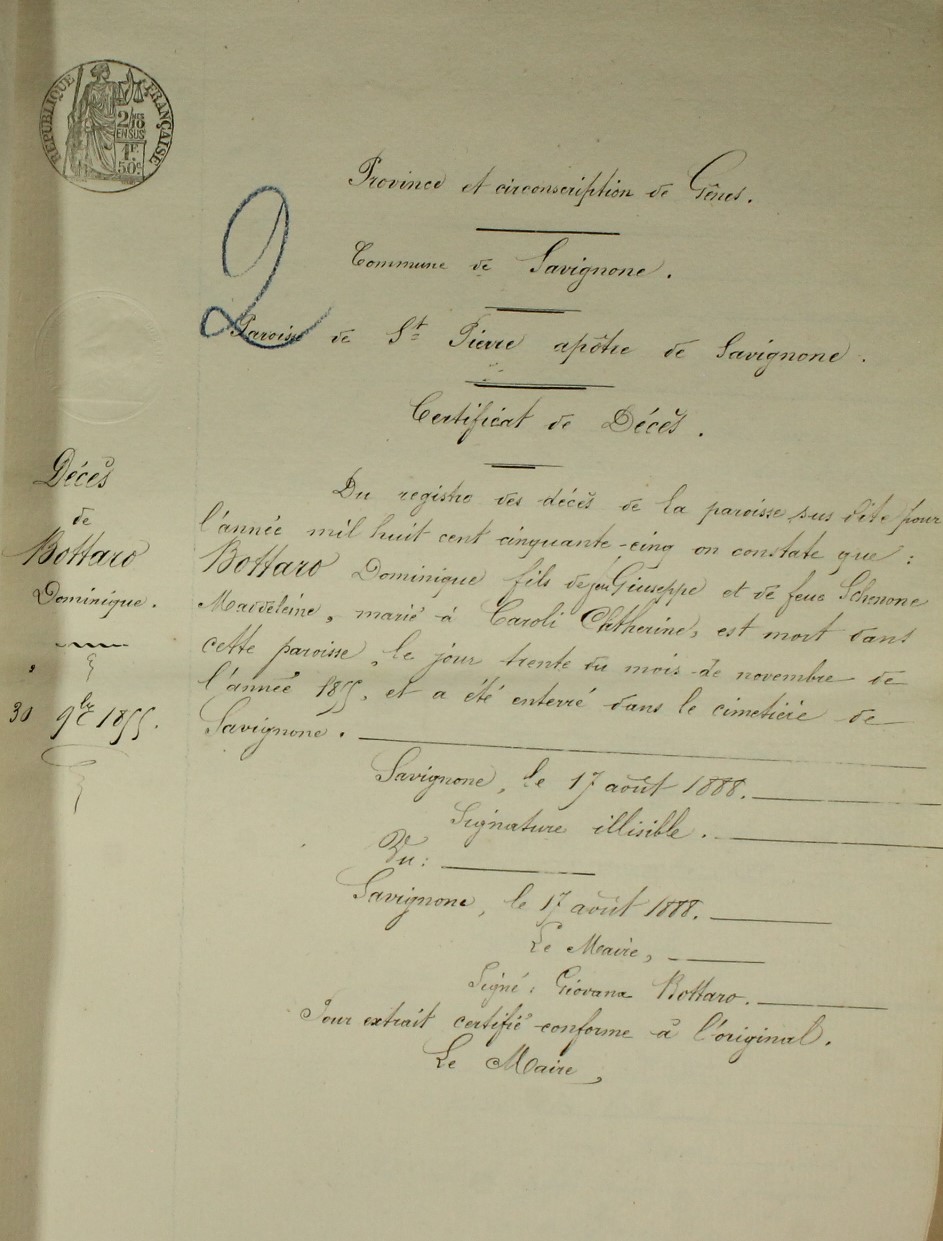 RÉPUBLIQUE FRANÇAISE
2/10 MES
EN SUS
1F.
50c
Province et circonscription de Gênes.
2
Commune de Savignone.
Paroisse de St Pierre apôtre de Savignone.
Certificat de Décès.
Décès
de
Bottaro
Dominique.
30 9bre 1855.
Du registre des décès de la paroisse sus dite pour
l'année mil huit cent cinquante-cinq on constate que :
Bottaro Dominique fils de feu Giuseppe et de feue Schenone
Madeleine, marié à Caroli Catherine, est mort dans
cette paroisse, le jour trente du mois de novembre de
l'année 1855, et a été enterré dans le cimetière de
Savignone.
Savignone, le 17 août 1888.
Signature illisible.
Vu :
Savignone, le 17 août 1888.
Le Maire,
Signé : Giovana Bottaro.
Pour extrait certifié conforme à l'original.
Le Maire,